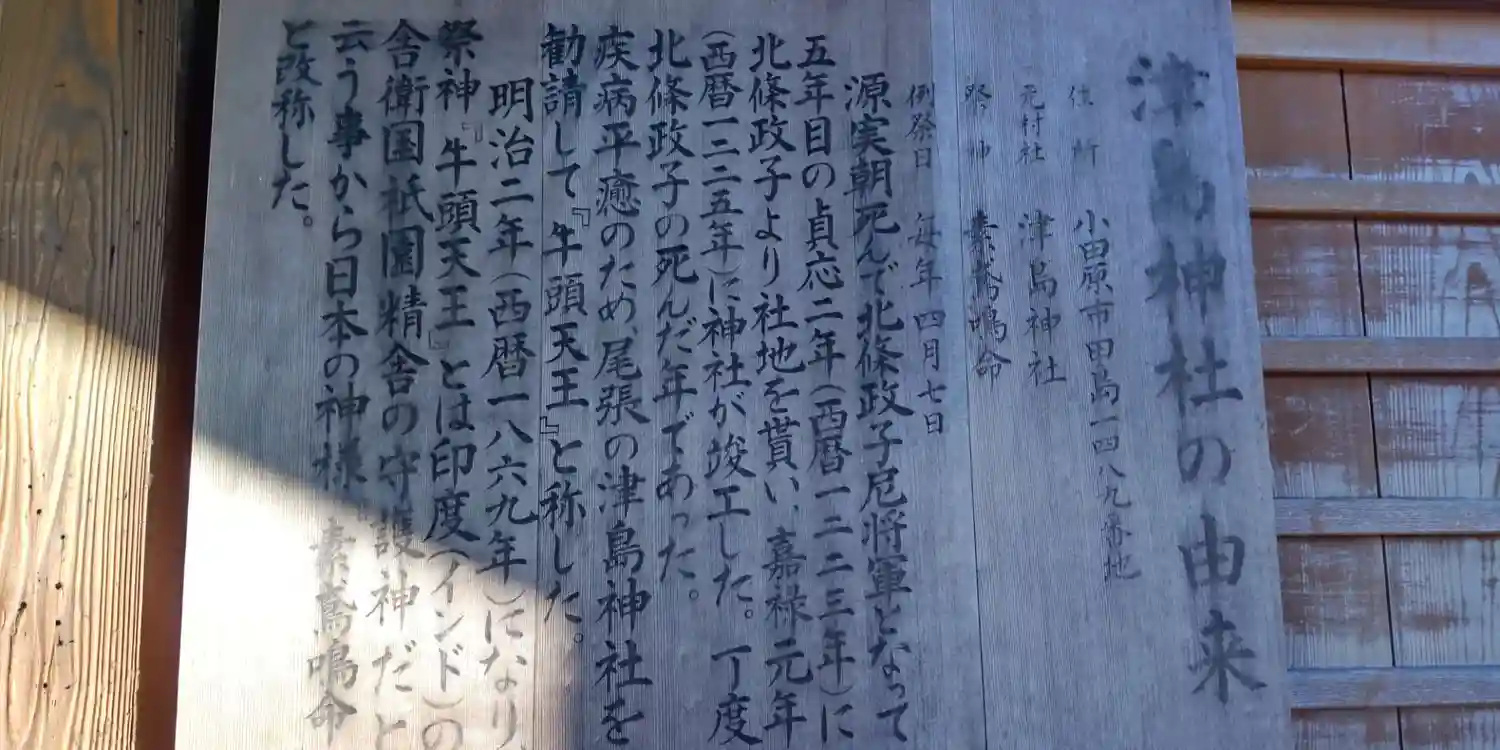 津島神社の由来
住所 小田原市田島一四八九番地
元村社 津島神社
祭神 素鵞鳴命
例祭日 毎年四月七日
源実朝死んで北條政子尼将軍となって
五年目の貞応二年(西暦一二二三年)に
北條政子より社地を貰い、嘉禄元年
(西暦一二二五年)に神社が竣工した。丁度
北條政子の死んだ年であった。
疾病平癒のため、尾張の津島神社を
勧請して『牛頭天王』と称した。
明治二年(西暦一八六九年)になり、
祭神『牛頭天王』とは印度(インド)の
舎衛国祇園精舎の守護神だと
云う事から日本の神様『素鵞鳴命
と改称した。